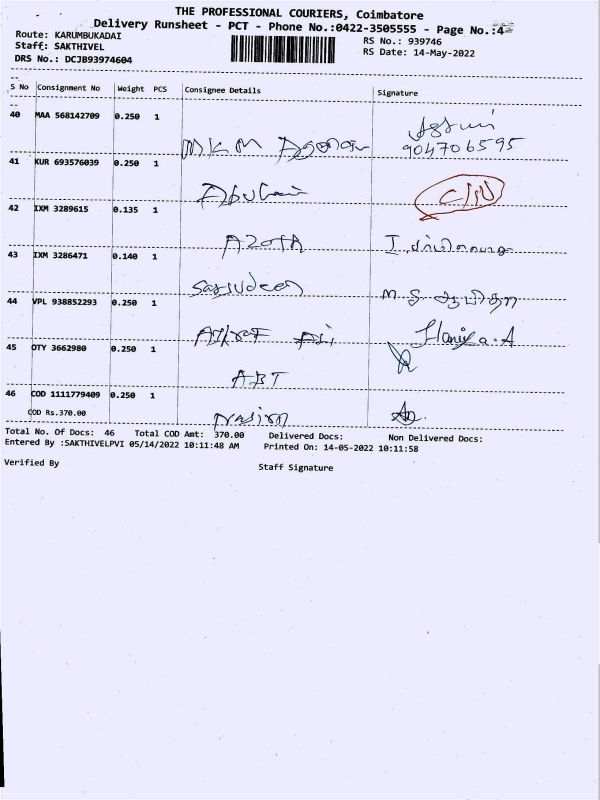 THE PROFESSIONAL COURIERS, Coimbatore
Delivery Runsheet - PCT - Phone No.:0422-3505555 - Page No.:4
Route: KARUMBUKADAI
RS No.: 939746
Staff: SAKTHIVEL
RS Date: 14-May-2022
DRS No.: DCJB93974604
S No Consignment No Weight PCS Consignee Details Signature
40 MAA 568142709 0.250 1
MKM
9047706595
41 KUR 693576039 0.250 1
42 IXM 3289615 0.135 1
AZOTA
43 IXM 3286471 0.140 1
44 VPL 938852293 0.250 1
M S
45 OTY 3662980 0.250 1
ABT
46 COD 1111779409 0.250 1
COD Rs.370.00
Total No. Of Docs: 46 Total COD Amt: 370.00 Delivered Docs: Non Delivered Docs:
Entered By :SAKTHIVELPVI 05/14/2022 10:11:48 AM Printed On: 14-05-2022 10:11:58
Verified By
Staff Signature